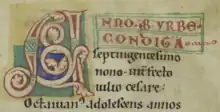 NNO·AB·VRBE·
CONDITA
septingentesimo
nono· interfecto
iulio cesare·
Octauianus adolescens annos